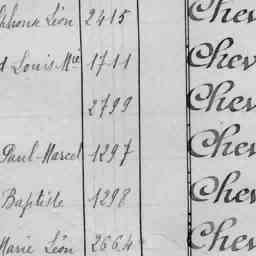 phonse Léon 2415 Chev
d Louis-Mie 1711 Chev
2799 Chev
Paul-Marcel 1297 Chev
Baptiste 1298 Chev
Marie Léon 2664 Chev